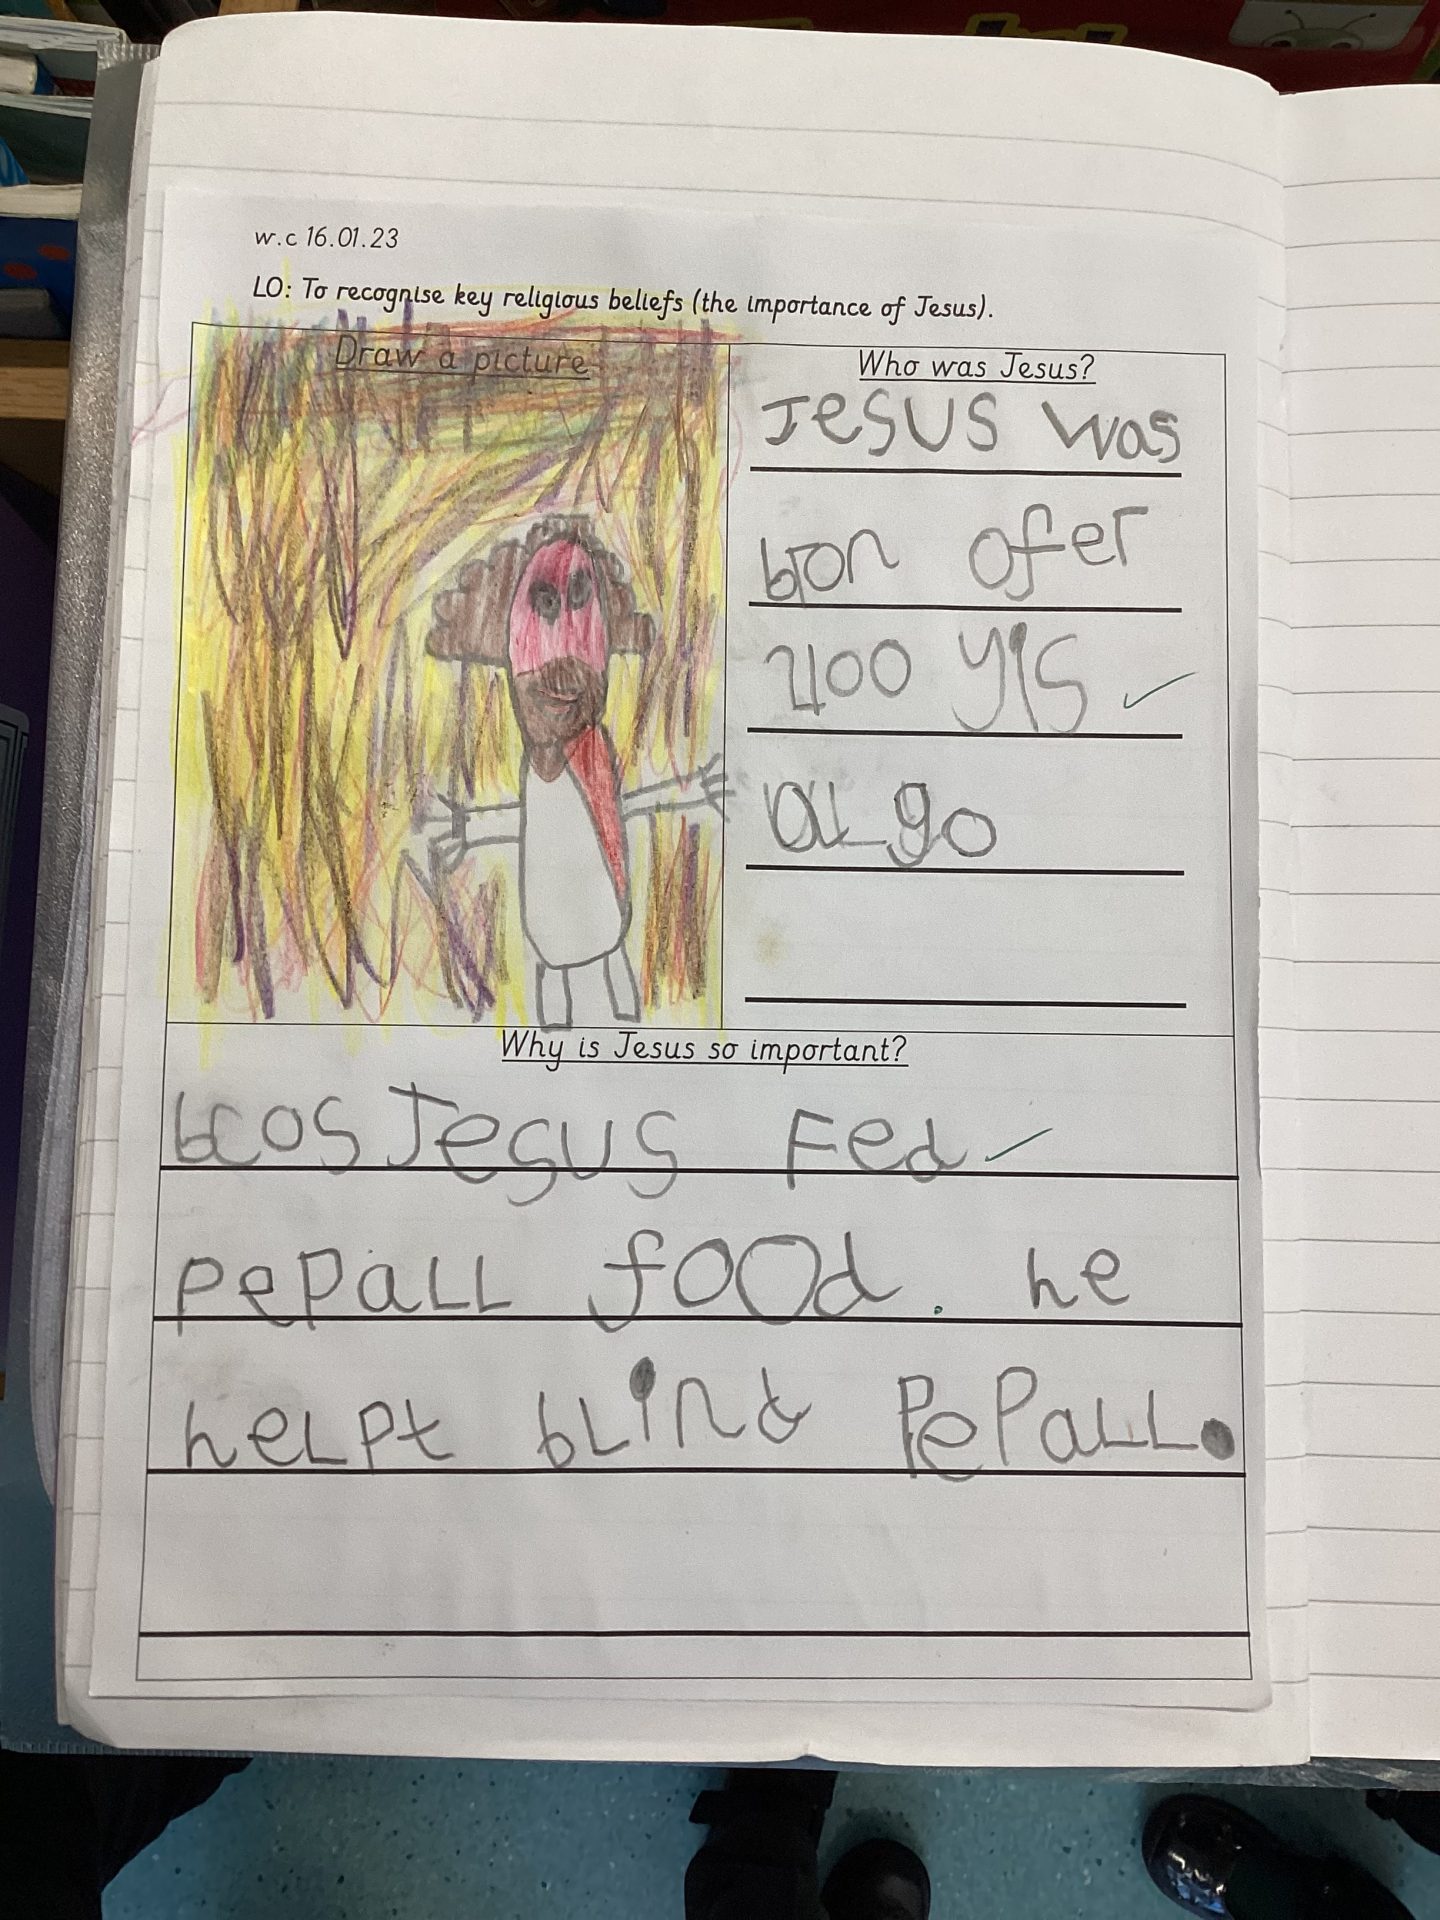 w.c 16.01.23
LO: To recognise key religious beliefs (the importance of Jesus).
Draw a picture
Who was Jesus?
Jesus was
bron ofer
2100 yis
au go
Why is Jesus so important?
bcos Jesus Fed
pepall food. he
helpt blind pepall.